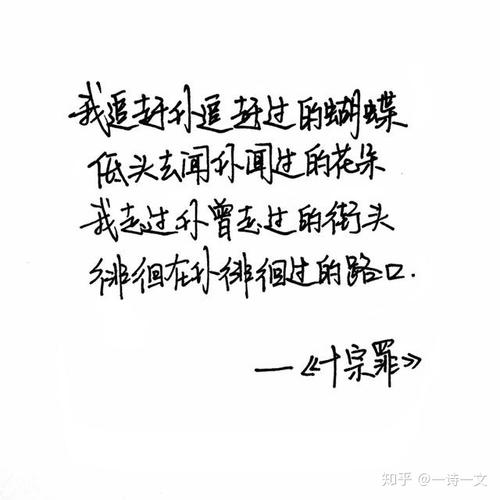 我追赶你追赶过的蝴蝶
低头去闻你闻过的花朵
我走过你曾走过的街头
徘徊在你徘徊过的路口.
—《十宗罪》
知乎 @一诗一文